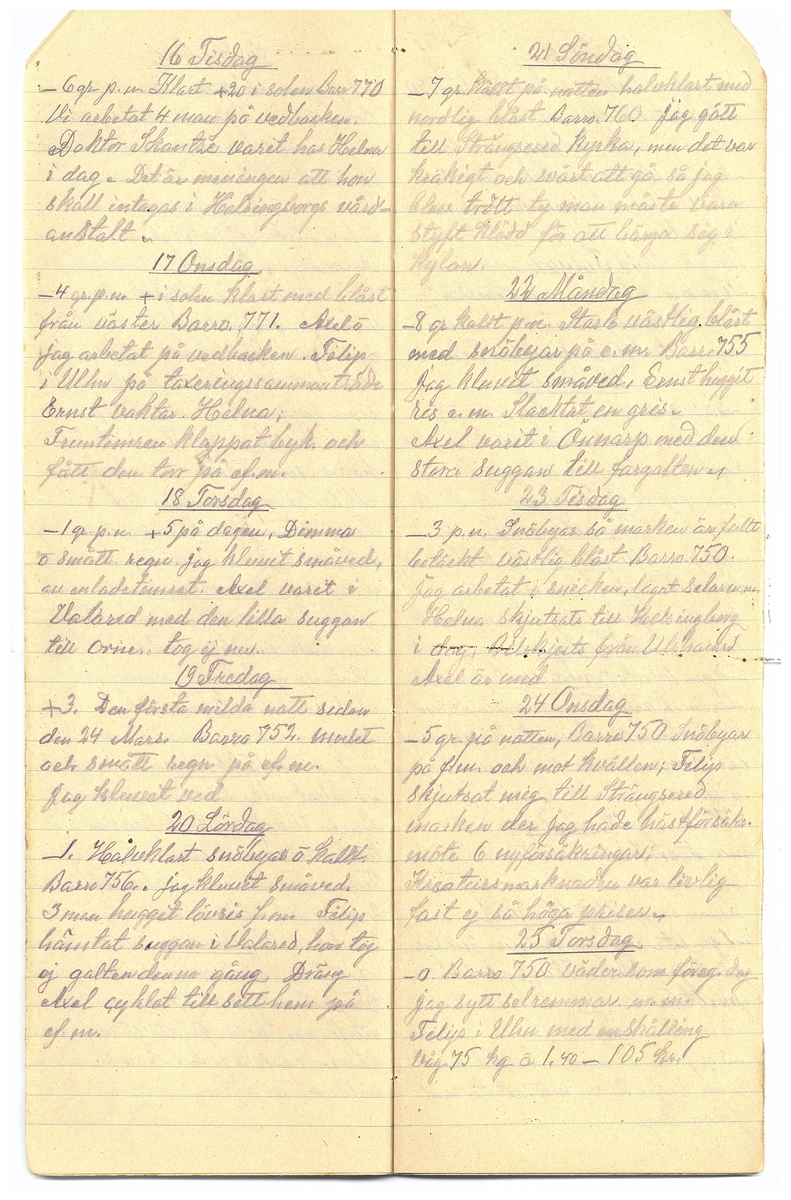 16 Tisdag
– 6 gr. p. n. Klart +20 i solen Barr 770
Vi arbetat 4 man på vedbacken.
Doktor Skantze varit hos Helna
i dag. Det är meningen att hon
skall intagas i Helsingborgs vård-
anstalt.
17 Onsdag
– 4 gr. p. n. + i solen klart med blåst
från väster Barro. 771. Axel o
jag arbetat på vedbacken. Filip
i Ulhu på taxeringssammanträde
Ernst vaktar Helna;
Fruntimren klappat byk och
fått den torr på ef.m.
18 Torsdag
– 1 gr p.n. +5 på dagen, Dimma
o smått regn. jag kluvit småved,
av enladetimret. Axel varit i
Valared med den lilla suggan
till orne.. tog ej nu.
19 Fredag
+3. Den första milda natt sedan
den 24 Mars. Barro 752. mulet
och smått regn på ef.m.
Jag kluvet ved
20 Lördag
– 1. Halvklart snöbyar o kallt.
Barro 756.. jag kluvet småved.
3 man hugget lövris f.m. Filip
hämtat suggan i Valared, hon tog
ej galten denna gång. Dräng
Axel cyklat till sett hem på
ef.m.
21 Söndag
– 7 gr. kallt på natten halvklart med
nordlig blåst Barro. 760 Jag gått
till Strängsered Kyrka, men det var
krakigt och svårt att gå så jag
blev trött ty man måste vara
styft klädd för att bärga sig i
kylan.
22 Måndag
– 8 gr kallt p.n. Stark västlig blåst
med snöbyar på e.m. Barro 755
Jag kluvit småved, Ernst hugget
ris e.m. Slacktat en gris.
Axel varit i Önnarp med den
stora suggan till fargalten
23 Tisdag
– 3 p.n. Snöbyar så marken är fullt
betäckt västlig blåst Barro 750.
Jag arbetat i snicken, lagat selar m.m.
Helna skjutsats till Helsingborg
i dag, Bilskjuts från Ulricehd
Axel är med
24 Onsdag
– 5 gr. på natten, Barro 750 Snöbyar
på f.m. och mot kvällen; Filip
skjutsat mig till Strängsered
marken der jag hade hästförsäkr.
möte 6 nyförsäkringar;
Kreatursmarknaden var livlig
fast ej så höga priser.
25 Torsdag
– 0. Barro 750 väder som föreg. dag
jag sytt selremmar m.m.
Filip i Ulhu med en skålling
väg. 75 kg a 1.40 – 105 kr.